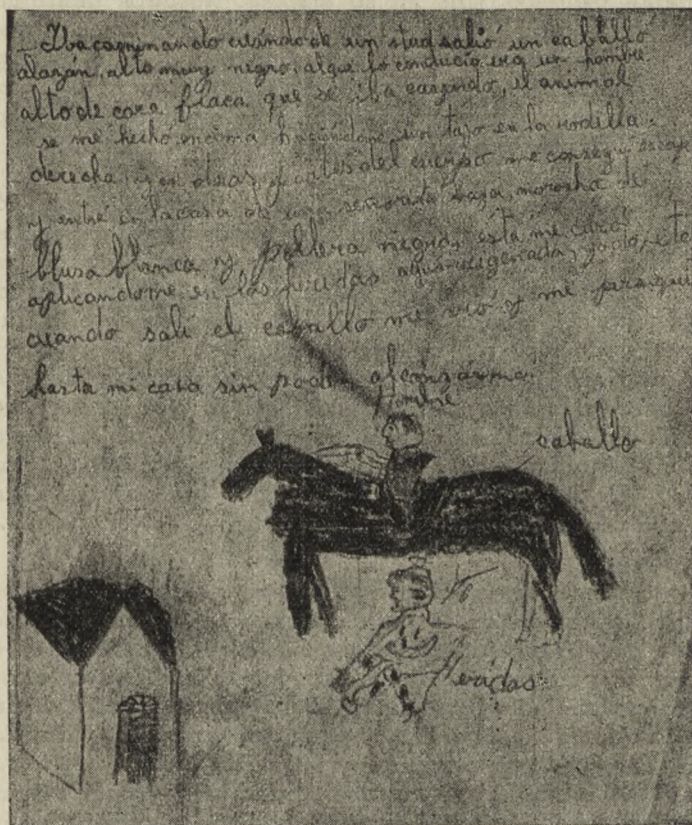 _ Iba caminando cuándo de un stud salió un caballo
alazán, alto muy negro, al que lo conducía era un hombre
alto de cara flaca que se iba cayendo, el animal
se me hecho encima haciéndome un tajo en la rodilla
derecha y en otras partes del cuerpo me conseguí
y entré en la casa de una señora baja, morocha de
blusa blanca y pollera negra, ésta me curó
aplicandome en las heridas agua oxigenada,
cuando salí el caballo me vió y me
hasta mi casa sin poder alcanzarme.
Hombre
caballo
Heridas